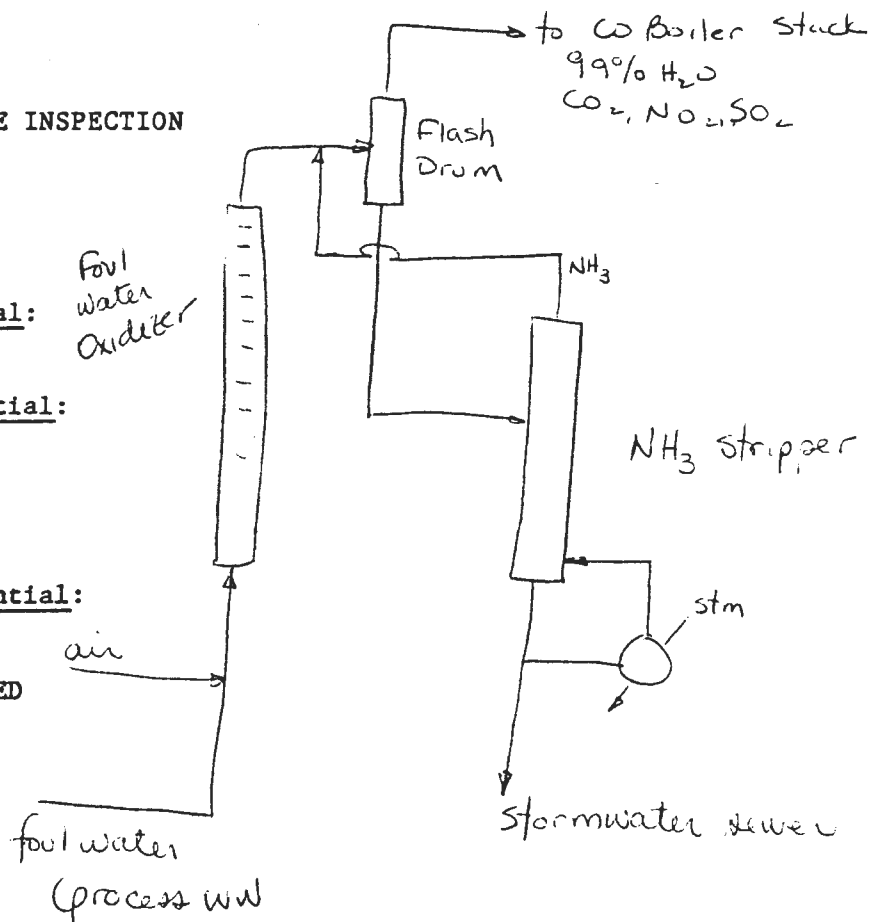 to CO Boiler Stack
99% H2O
CO2, NO2, SO2
E INSPECTION
Flash
Drum
Foul
water
Oxidizer
al:
NH3
tial:
NH3 stripper
ntial:
stm
air
ED
stormwater sewer
foul water
(process WW